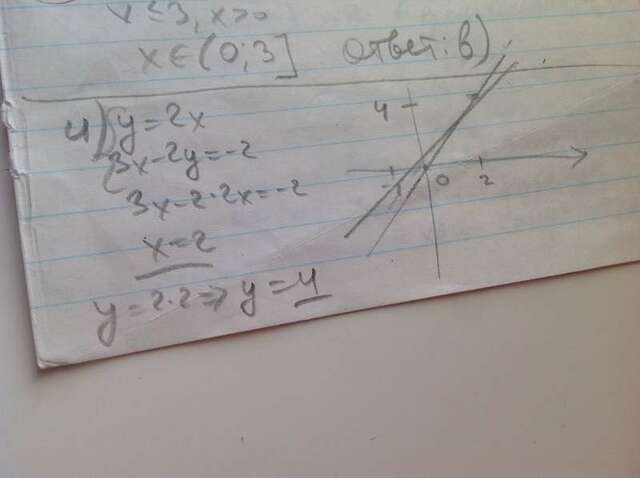 x ≤ 3, x > 0
x ∈ (0; 3] Ответ: в)
4) { y = 2x
3x - 2y = -2
3x - 2 · 2x = -2
x = 2
y = 2 · 2 => y = 4
4
-1 0 2